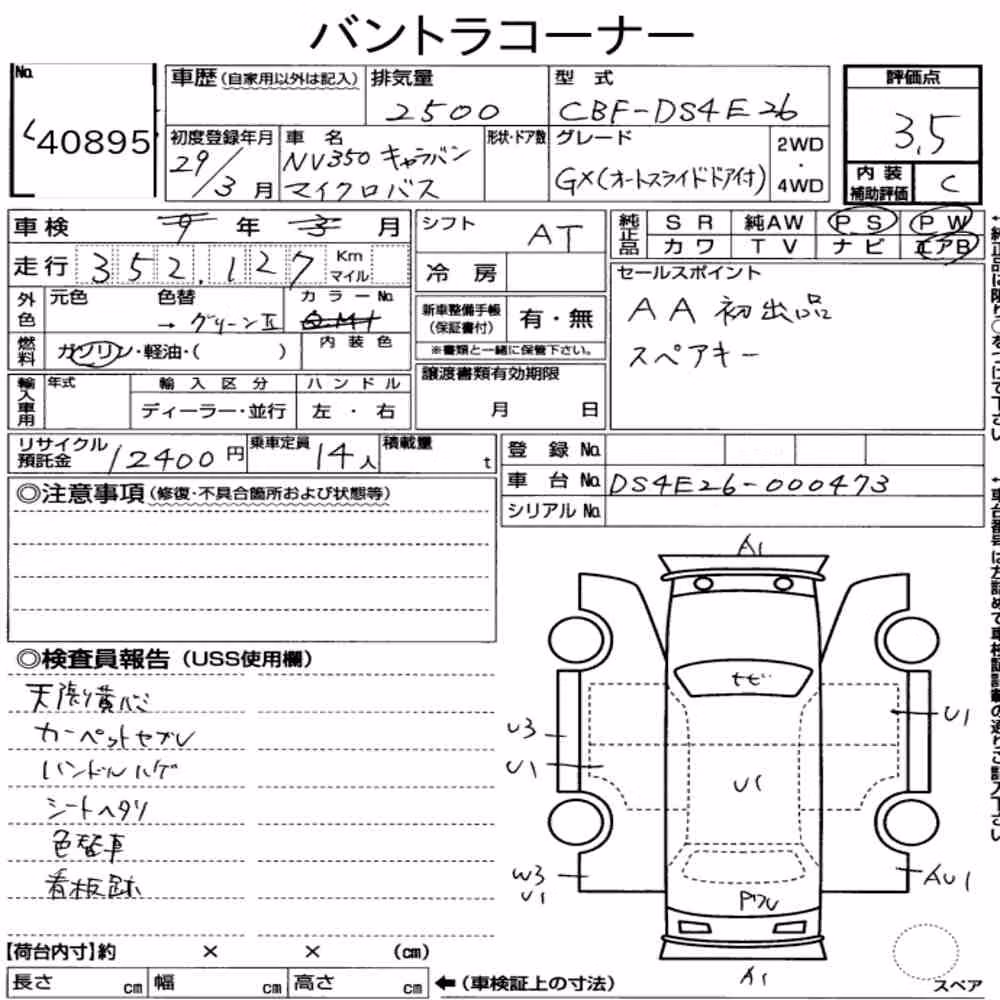 バントラコーナー
No. 40895
車歴 (自家用以外は記入)
排気量 2500
型式 CBF-DS4E26
評価点 3.5
初度登録年月 29/3月
車名 NV350 キャラバン
マイクロバス
形状・ドア数
グレード GX(オートスライドドア付)
2WD
・
4WD
内装
補助評価 C
車検 年 月
シフト AT
純正品 SR 純AW PS PW
カワ TV ナビ エアB
走行 352,127 Km
マイル
冷房
セールスポイント
AA初出品
スペアキー
外色 元色 色替 →グリーンⅡ カラーNo.
新車整備手帳
(保証書付) 有・無
※書類と一緒に保管下さい。
燃料 ガソリン・軽油・( )
内装色
譲渡書類有効期限
月 日
輸入車用 年式 輸入区分 ハンドル
ディーラー・並行 左・右
リサイクル
預託金 12400円
乗車定員 14人
積載量 t
登録No.
車台No. DS4E26-000473
シリアルNo.
◎注意事項(修復・不具合箇所および状態等)
◎検査員報告(USS使用欄)
天張り黄バミ
カーペットヤブレ
ハンドルハゲ
シートヘタリ
色替車
看板跡
A1
ナビ
U3
U1
U1
U1
W3
U1
AU1
Pワレ
A1
スペア
【荷台内寸】約 × × (cm)
長さ cm 幅 cm 高さ cm
←(車検証上の寸法)
↑純正品に限り○をつけて下さい
↑車台番号は左詰めで車検証記載の通りご記入下さい